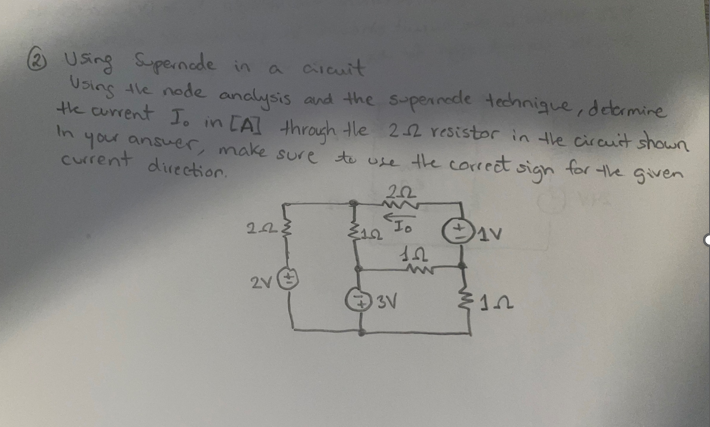 ② Using Supernode in a circuit
Using the node analysis and the supernode technique, determine
the current I₀ in [A] through the 2Ω resistor in the circuit shown
In your answer, make sure to use the correct sign for the given
current direction.
2Ω
I₀
2Ω
1Ω
1V
1Ω
2V
3V
1Ω